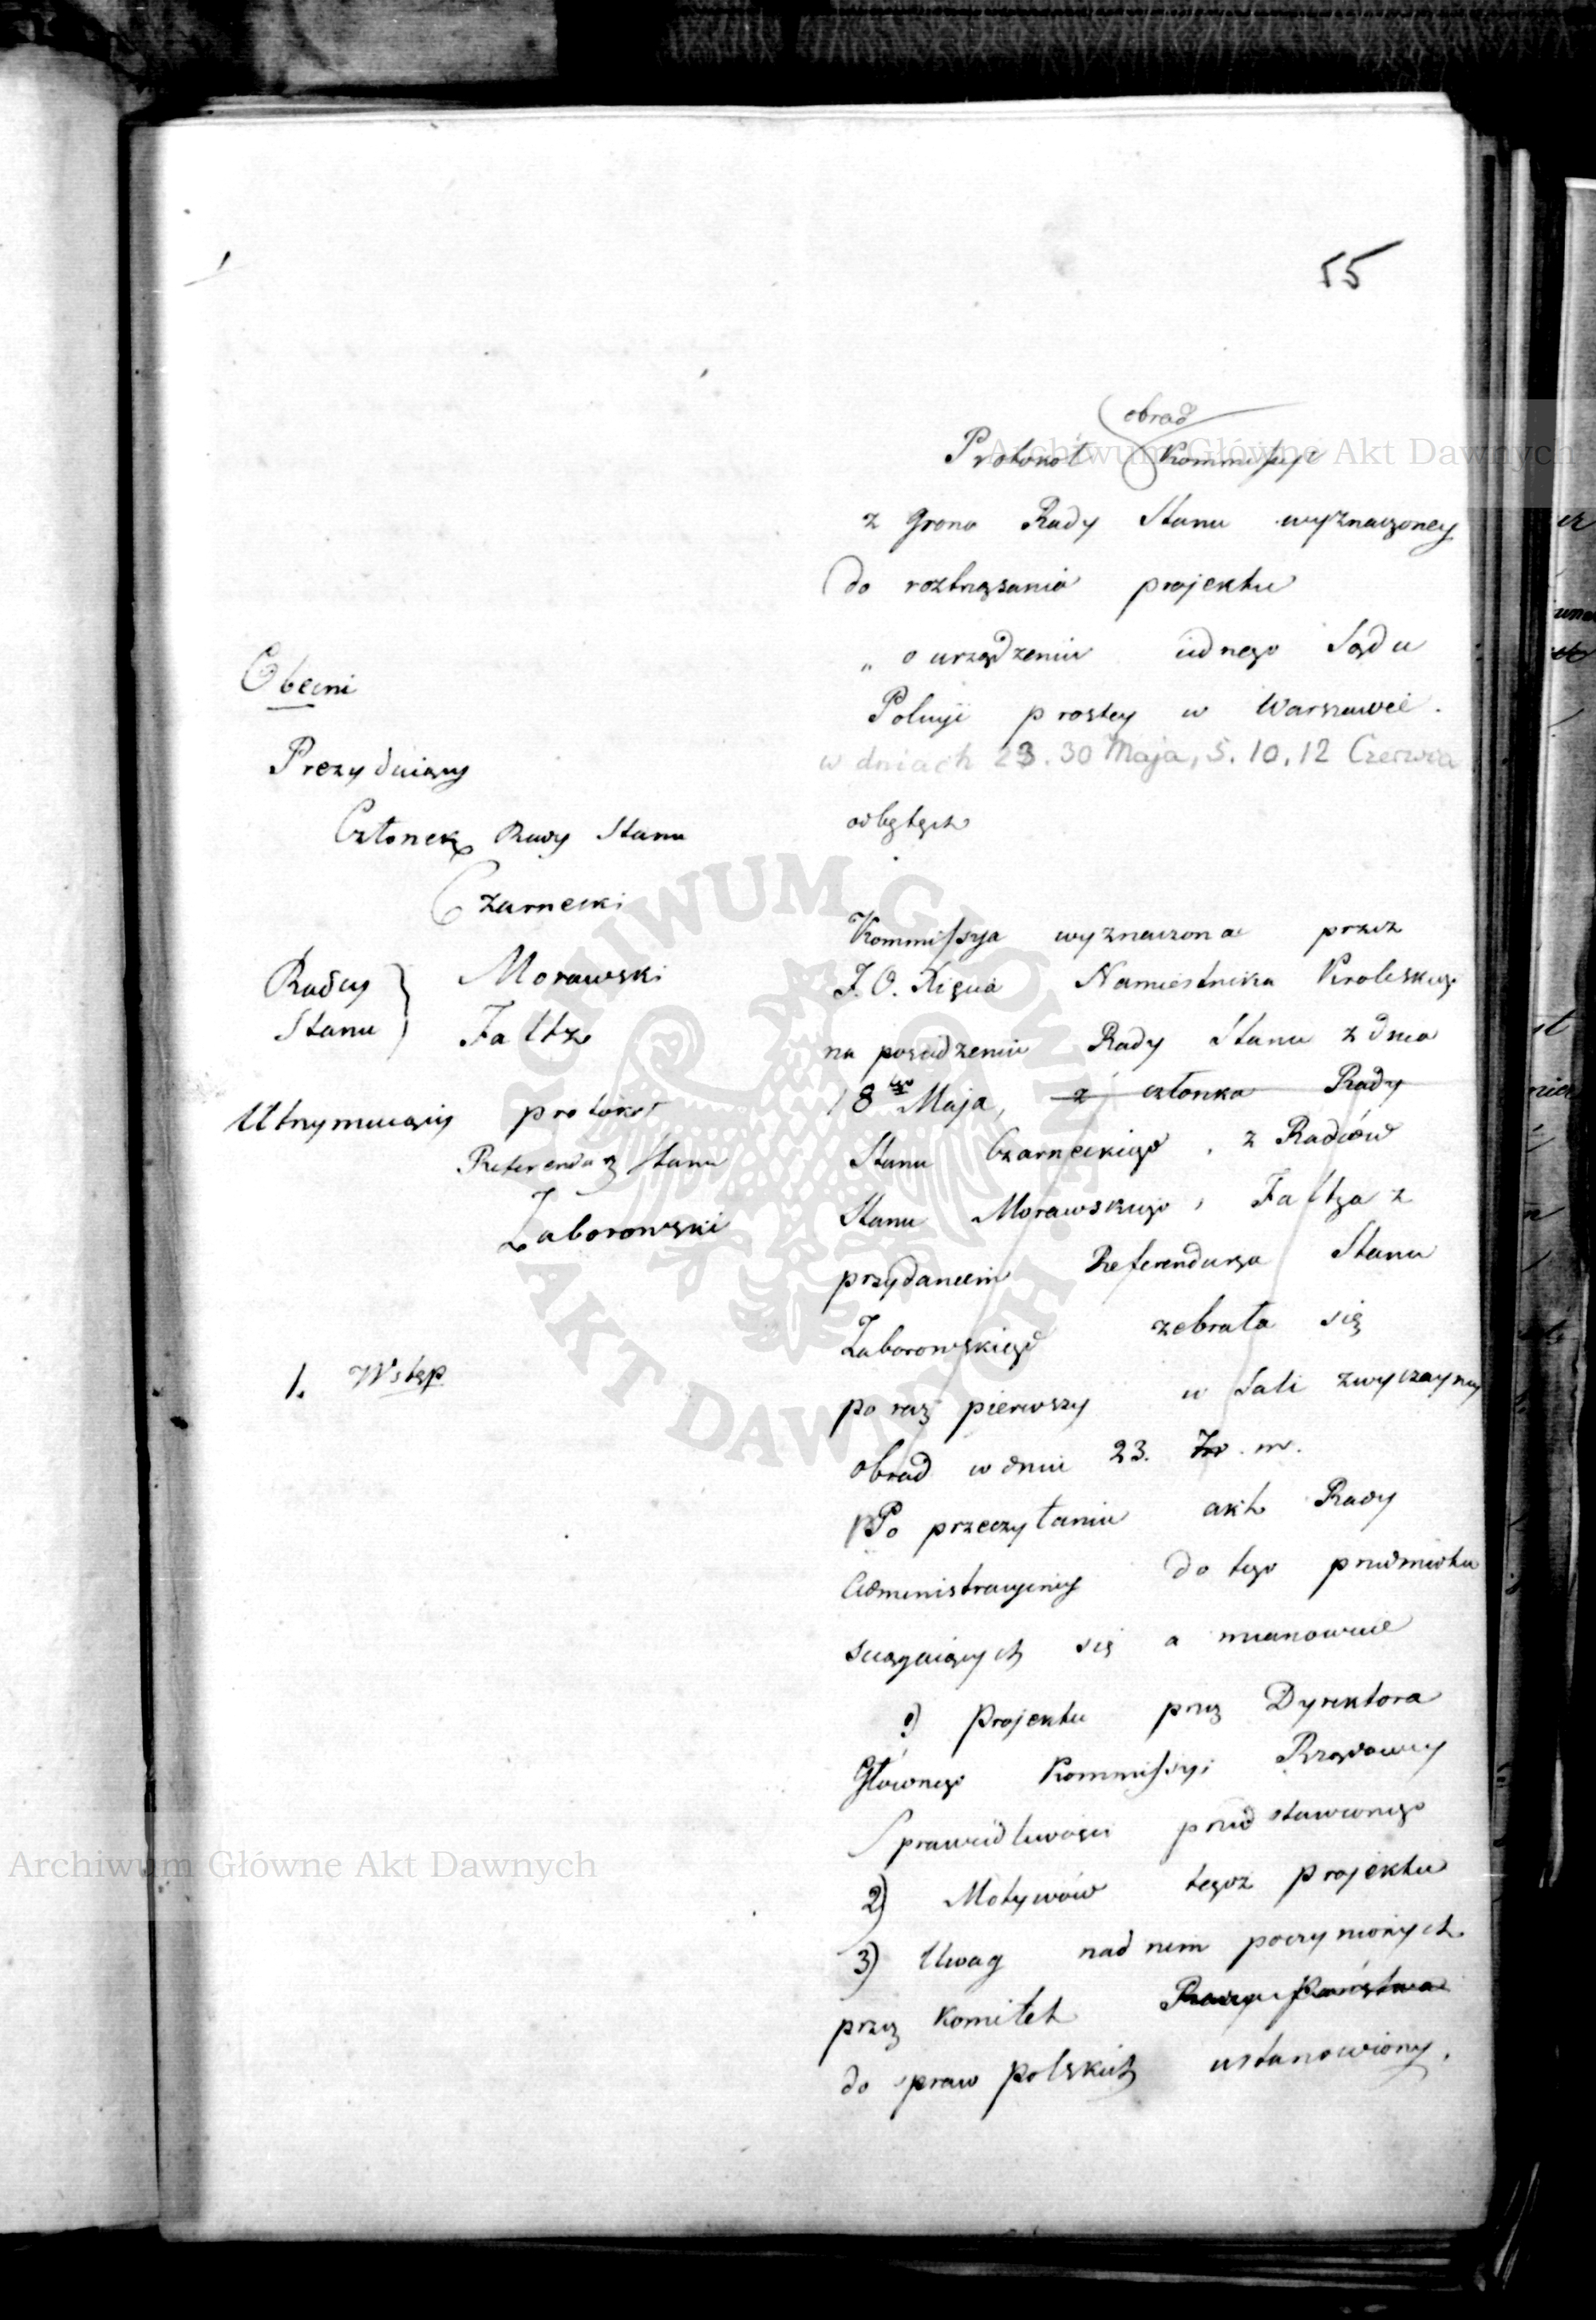 55
obrad
Protokół Kommissyi
z grona Rady Stanu wyznaczoney
do roztrząsania projektu
„ o urządzeniu iednego Sądu
Policyi prostey w Warszawie.
w dniach 23. 30 Maja, 5. 10, 12 Czerwca
odbytych
Obecni
Prezyduiący
Członek Rady Stanu
Czarnecki
Radcy Stanu } Morawski
Faltz
Utrzymuiący protokoł
Referendarz Stanu
Zaborowski
Kommissya wyznaczona przez
J. O. Xięcia Namiestnika Krolewskiego
na posiedzeniu Rady Stanu z dnia
18go Maja, z członka Rady
Stanu Czarneckiego, z Radców
Stanu Morawskiego, Faltza z
przydaniem Referendarza Stanu
Zaborowskiego zebrała się
po raz pierwszy w Sali zwyczayney
obrad w dniu 23. m.
1. Wstęp
Po przeczytaniu akt Rady
Administracyiney do tego przedmiotu
sciągaiących się a mianowicie
1) Projektu przez Dyrektora
Głównego Kommissyi Rządowey
Sprawiedliwości przedstawionego
2) Motywów tegoż projektu
3) Uwag nad niem poczynionych
przez Komitet
do spraw polskich ustanowiony.
Archiwum Główne Akt Dawnych
Archiwum Główne Akt Dawnych
ARCHIWUM GŁÓWNE AKT DAWNYCH